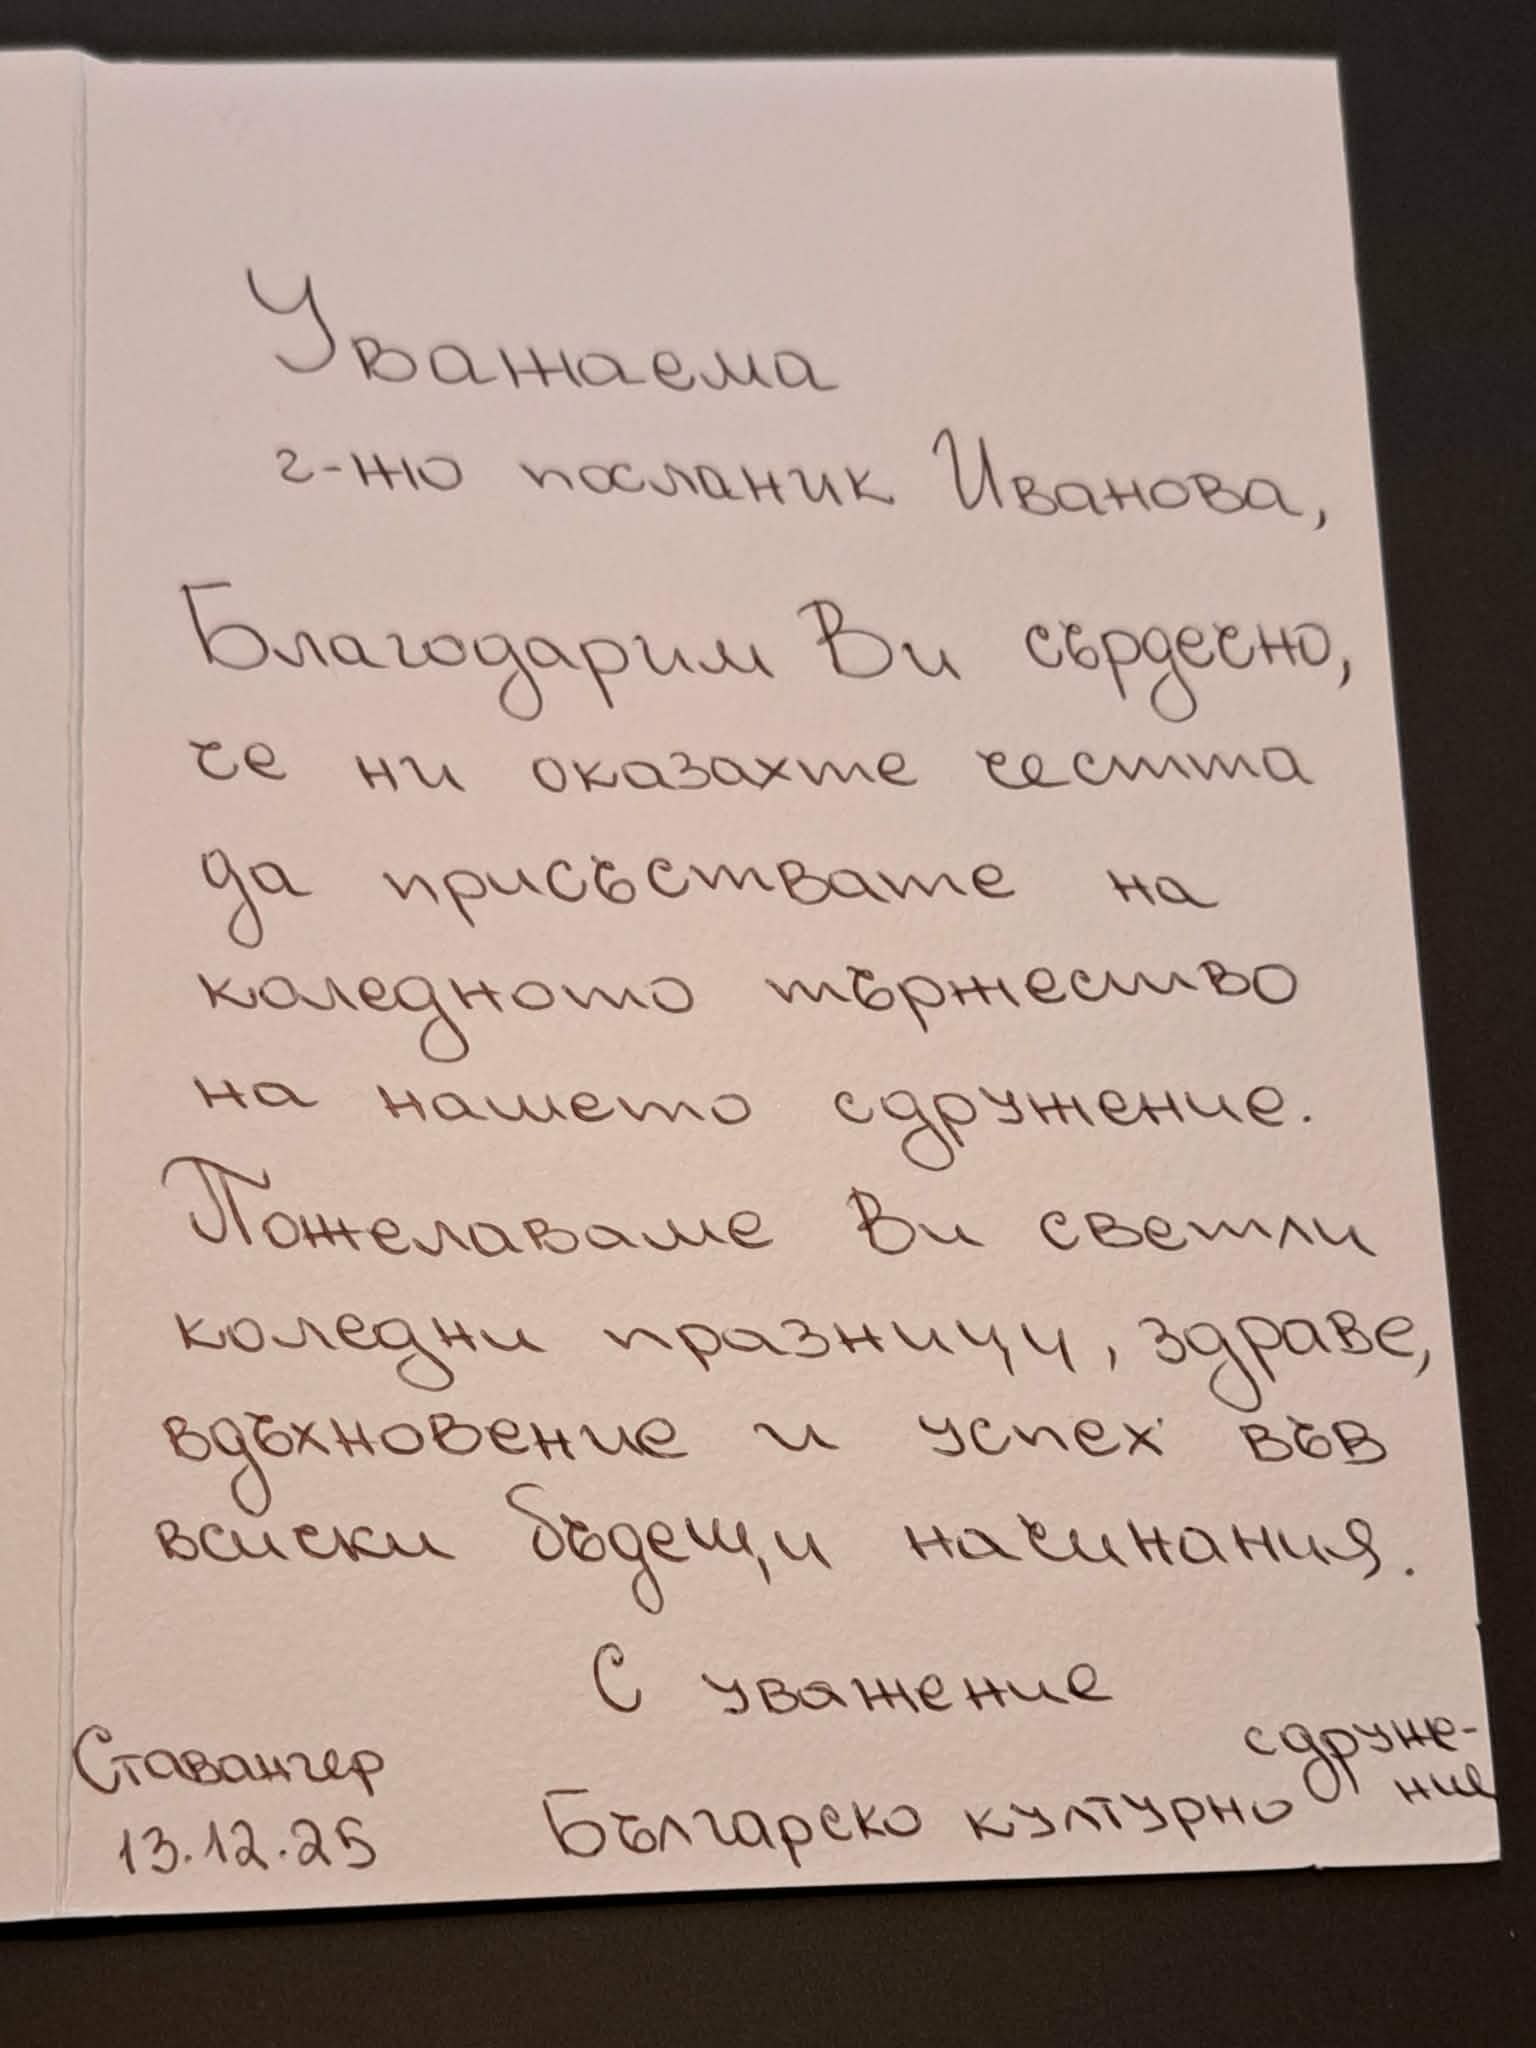 Уважаема
г-жо посланик Иванова,
Благодарим Ви сърдечно,
че ни оказахте честта
да присъствате на
коледното тържество
на нашето сдружение.
Пожелаваме Ви светли
коледни празници, здраве,
вдъхновение и успех във
всички бъдещи начинания.
С уважение
Българско културно сдруже-
ние
Ставангер
13.12.25